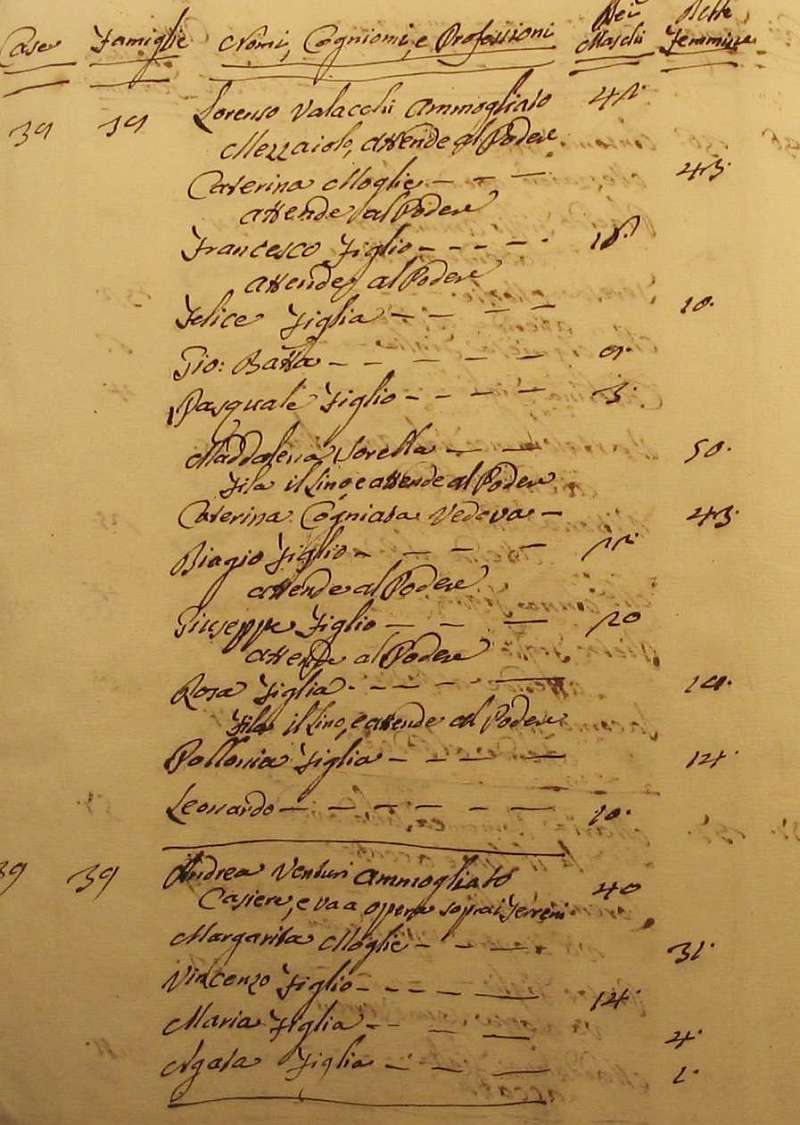 Case Famiglie Nomi, Cogniomi, e Professioni Dei Maschi Delle Femmine
39 39 Lorenso Valacchi Ammogliato
Mezzaiolo, attende al Podere
Caterina Moglie - - - 43.
attende al Podere
Francesco Figlio - - - - - 18
attende al Podere
Felice Figlia - - - - 10.
Gio: Batta - - - - - -
Pasquale Figlio - - - - - 3.
Maddalena Sorella - - - 50.
Fila il Lino e attende al Podere
Caterina Cogniata Vedova - 43.
Biagio Figlio - - - -
attende al Podere
Giuseppe Figlio - - - 20
attende al Podere
Rosa Figlia - - - - -
Fila il Lino, e attende al Podere
Pollonia Figlia - - - - 14.
Leonardo - - - - - - 10.
39 39 Andrea Venturi Ammogliato 40
Casiere, e va a opera sopra i Terreni
Margarita Moglie - - - - 31.
Vincenzo Figlio - - - - - 14.
Maria Figlia - - - - 4.
Agata Figlia - - - - 1.